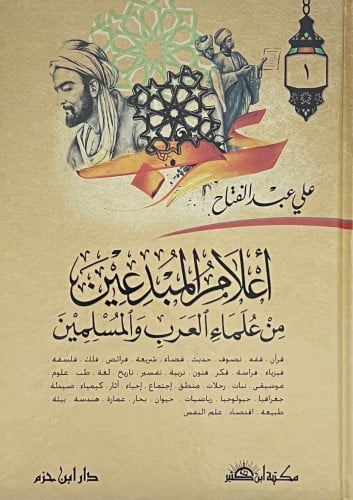 ١
علي عبد الفتاح
أعلام المبدعين
من علماء العرب والمسلمين
قرآن . فقه . تصوف . حديث . قضاء . شريعة . فرائض . فلك . فلسفة
فيزياء . فراسة . فكر . فنون . تربية . تفسير . تاريخ . لغة . طب . علوم
موسيقى . نبات . رحلات . منطق . إجتماع . إحياء . آثار . كيمياء . صيدلة
جغرافيا . جيولوجيا . رياضيات . حيوان . بحار . عمارة . هندسة . بيئة
طبيعة . اقتصاد . علم النفس
مكتبة ابن كثير
دار ابن حزم